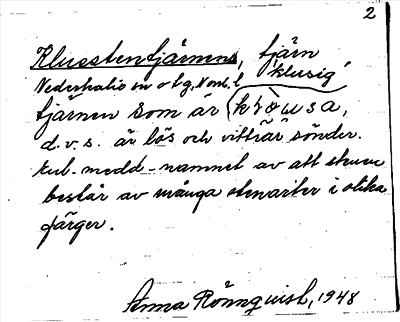 2
Klusstentjärnens, tjärn
'klusig'
Nederkalix sn o tg, Norrb. l
tjärnen som är
d.v.s. är lös och vittrar sönder.
enl. medd. namnet av att stenen
består av många stenarter i olika
färger.
Anna Rönnquist, 1948